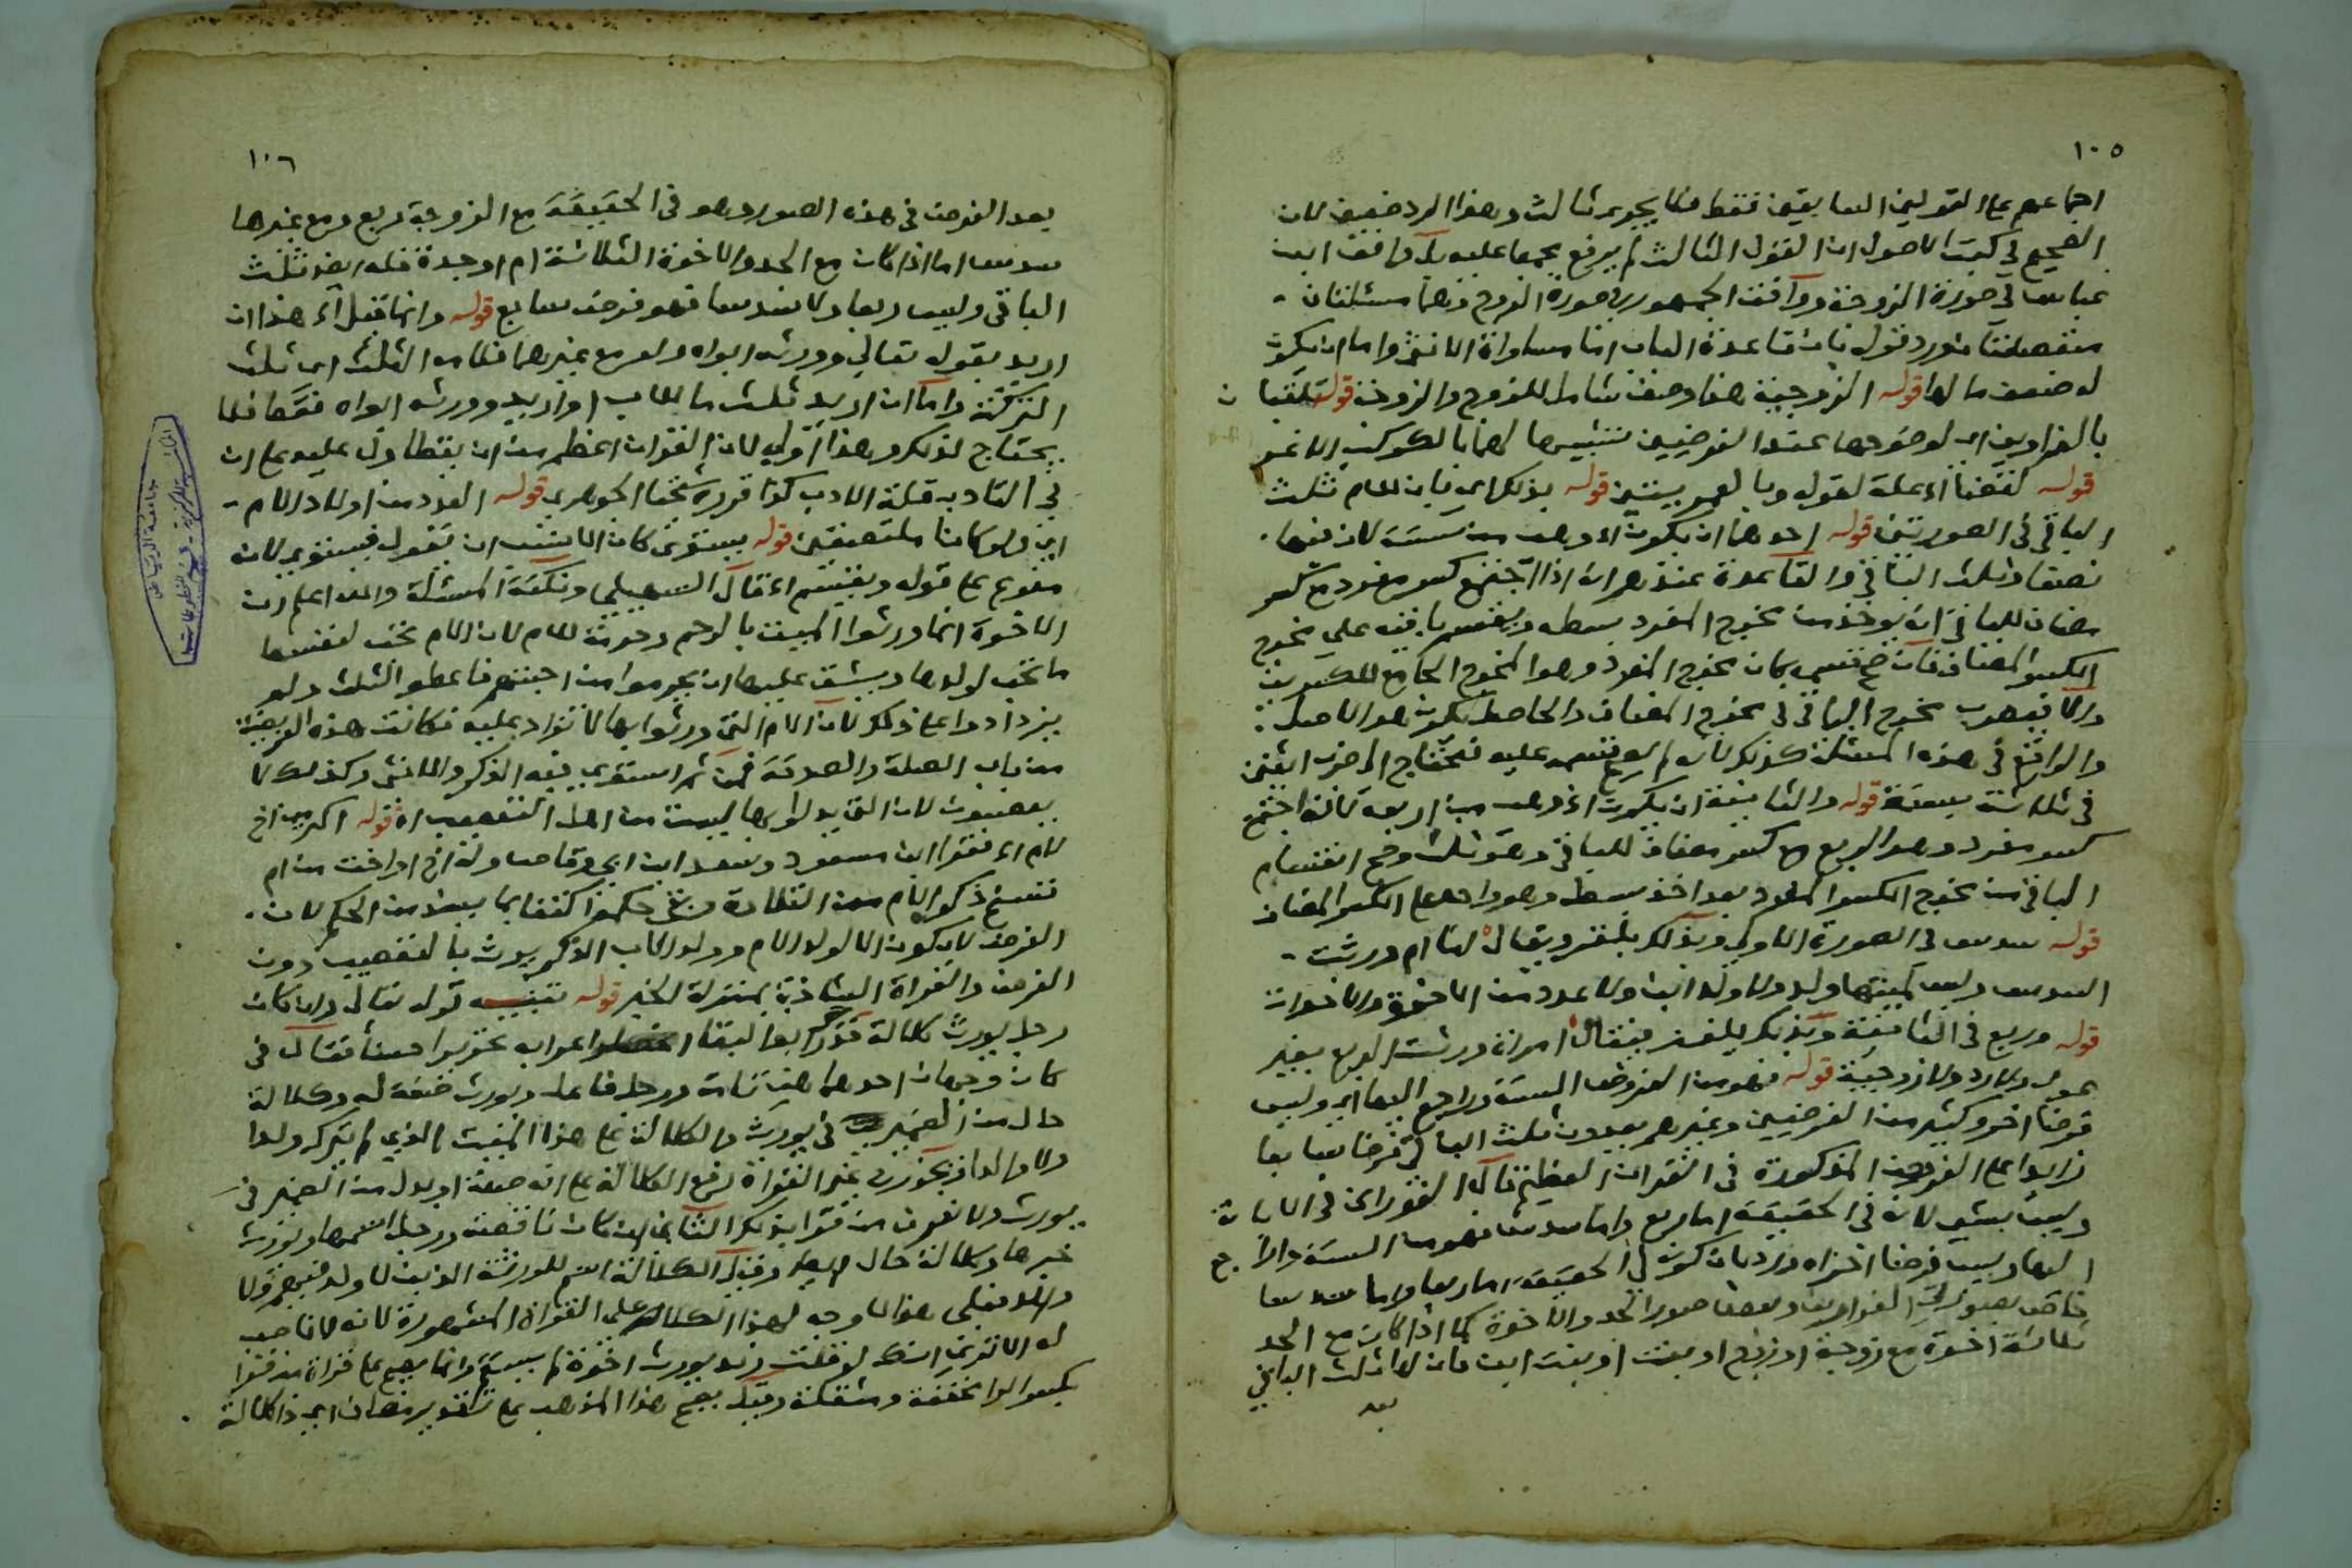 ١٠٥
اجماعهم على القولين السابقين فقط فلا يجوز ثالث وهذا الرد ضعيف لان
الصحيح في كتب الاصول ان القول الثالث لم يرفع مجمعا عليه بل وافقت ابن
عباس في صورة الزوجة ووافقت الجمهور في صورة الزوج وهما مسئلتان
منفصلتان ورد قوله بان قاعدة الباب اما مساواة الانثى واما ان يكون
له ضعف ما لها قوله الزوجية هذا وصف شامل للزوج والزوجة قوله تلقبان
بالغراوين اي لوضوحهما عند الفرضيين تشبيها لهما بالكوكب الاغر
قوله لقضاء علة لقوله وبالعمريتين قوله بذلك اي بان للام ثلث
الباقي في الصورتين قوله احدهما ان يكون اء وهب من ستة لان فيها
نصفا وثلث الباقي والقاعدة عندهم انه اذا اجتمع كسر مفرد مع كسر
مضاف للباقي انه يوخذ من مخرج المفرد بسطه ويقسم باقيه على مخرج
الكسر المضاف فان صح قسمه كان مخرج المفرد وهو المخرج الجامع للكسرين
والا فيضرب مخرج الباقي في مخرج المضاف والحاصل يكون هو الاصل
والواقع في هذه المسئلة كذلك لانه لم يصح قسمه عليه فتحتاج الى ضرب اثنين
في ثلاثة بستة قوله والثانية ان يكون اء وهب من اربعة لانه اجتمع
كسر مفرد وهو الربع مع كسر مضاف للباقي وهو ثلث وصح انقسام
الباقي من مخرج الكسر المفرد بعد اخذ بسطه وهو واحد على الكسر المضاف
قوله سدس في الصورة الاولى وبذلك يلغز ويقال لنا ام ورثت
السدس وليس لميتها ولد ولا ولد ابن ولا عدد من الاخوة والاخوات
قوله وربع في الثانية وبذلك يلغز فيقال امراة ورثت الربع بغير
عول ولا رد ولا زوجية قوله فهو من الفروض الستة وراجع اليها اي وليس
فرضا اخر وكثير من الفرضيين وغيرهم يعدون ثلث الباقي فرضا سابعا
زايدا على الفروض المذكورة في القران العظيم قال الغوراني في الابانة
وليس بشي لانه في الحقيقة اما ربع واما سدس فهو من الستة راجع
اليها وليس فرضا اخر اه ورد بان كونه في الحقيقة اما ربعا واما سدسا
خاص بصورتي الغراوين وبعض صور الجد والاخوة كما اذا كان مع الجد
ثلاثة اخوة مع زوجة او زوج او بنت او بنت ابن فان له ثلث الباقي
بعد
١٠٦
بعد الفرض في هذه الصور وهو في الحقيقة مع الزوجة ربع ومع غيرها
سدس اما اذا كان مع الجد والاخوة الثلاثة ام او جدة فله ايضا ثلث
الباقي وليس ربعا ولا سدسا فهو فرض سابع قوله وانما قيل اء هذا ان
اريد بقوله تعالى وورثه ابواه ولو مع غيرهما فلامه الثلث اي ثلث
التركة واما ان اريد ثلث ما للاب او اريد وورثه ابواه فقط فلا
يحتاج لذلك وهذا اولى لان القران اعظم من ان يقطا ول عليه على ان
في التادب قلة الادب كذا قرره شيخنا الجوهري قوله العدد من اولاد الام
اي ولو كانا ملتصقين قوله يستوي كان الانسب ان يقول فيستوي لانه
مفرع على قوله ويقسم اء قال السهيلي ونكتة المسئلة والله اعلم ان
الاخوة انما ورثوا الميت بالرحم وحرمة الام لان الام تحب لنفسها
ما تحب لولدها ويشق عليها ان يحرموا من اجنتهم فاعطوا الثلث ولم
يزدادوا على ذلك لان الام التي ورثوا بها لا تزاد عليه فكانت هذه الفريضة
من باب الصلة والصدقة فمن ثم استوى فيه الذكر والانثى وكذلك لا
يعصبون لان التي يدلون بها ليست من اهل التعصيب اه قوله اكد من اخ
لام اء فقرا ابن مسعود وسعد ابن ابي وقاص وله اخ او اخت من ام
فنسخ ذكر الام من التلاوة وبقي حكمها اكتفا بما يبينه من الحكم لان
الفرض لا يكون الا لولد الام وولد الاب الذكر يورث بالتعصيب دون
الفرض والقراة الشاذة بمنزلة الخبر قوله تنبيه قوله تعالى وان كان
رجل يورث كلالة قرر ابو البقا اعرابه تحريرا حسنا فقال في
كان وجهان احدهما هي تامة ورجل فاعل ويورث صفة له وكلالة
حال من الضمير في يورث والكلالة على هذا الميت الذي لم يترك ولدا
ولا والدا ويجوز في غير القراة رفع الكلالة على انه صفة او بدل من الضمير في
يورث ولا نعرف من قرا بذلك الثاني ان كان ناقصة ورجل اسمها ويورث
خبرها وكلالة حال ايضا وقيل الكلالة اسم للورثة الذين لا ولد فيهم ولا
والد فعلى هذا لا وجه لهذا الكلام على القراة المشهورة لانه لا ناصب
له الا ترى انك لو قلت زيد يورث اخوة لم يستقم وانما يصح على قراة من قرا
بكسر الرا مخففة ومثقلة وقيل يصح هذا المذهب على تقدير مضاف اي ذا كلالة